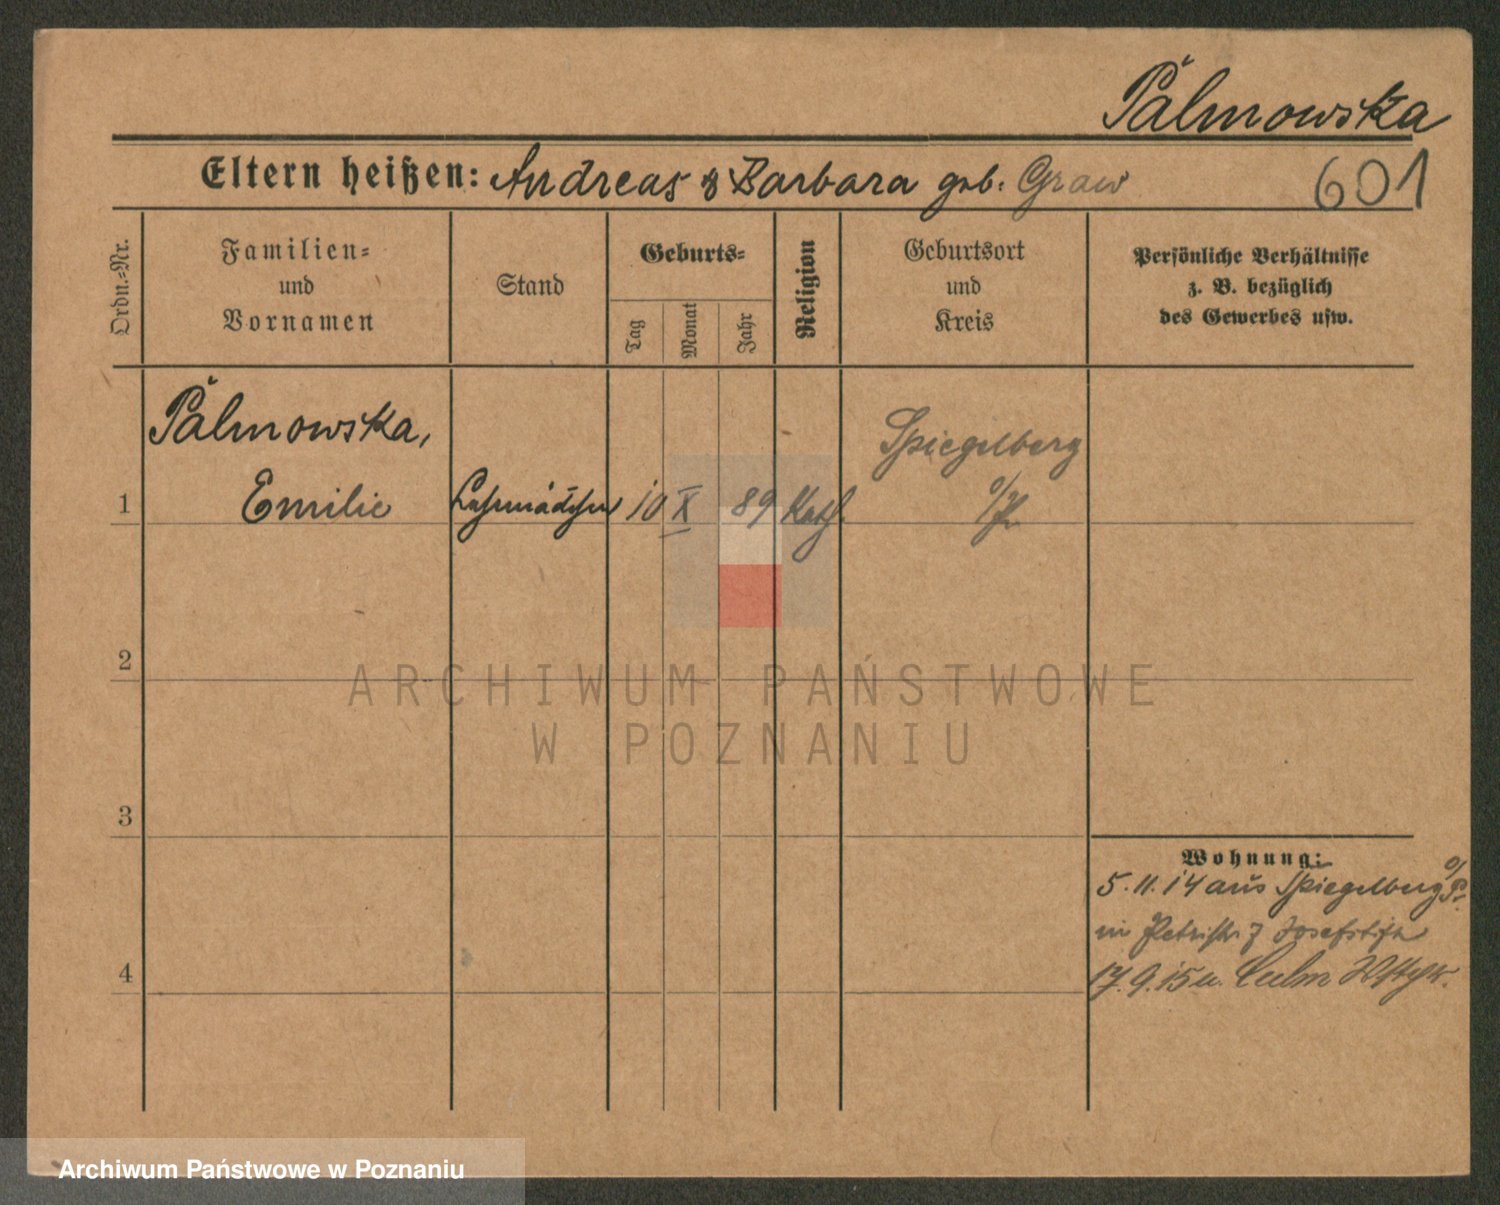 Palmowska
Eltern heißen: Andreas & Barbara geb. Graw
601
Ordn.-Nr.
Familien-
und
Vornamen
Stand
Geburts-
Tag
Monat
Jahr
Religion
Geburtsort
und
Kreis
Persönliche Verhältnisse
z. B. bezüglich
des Gewerbes usw.
Palmowska,
Emilie
Lehrmädchen
10 X 89
Kath.
Spiegelberg
O/Pr.
1
2
3
4
Wohnung:
5.11.14 aus Spiegelberg O/Pr.
in Petristr. 7 Josefstift
17.9.15 n. Culm
ARCHIWUM PAŃSTWOWE
W POZNANIU
Archiwum Państwowe w Poznaniu